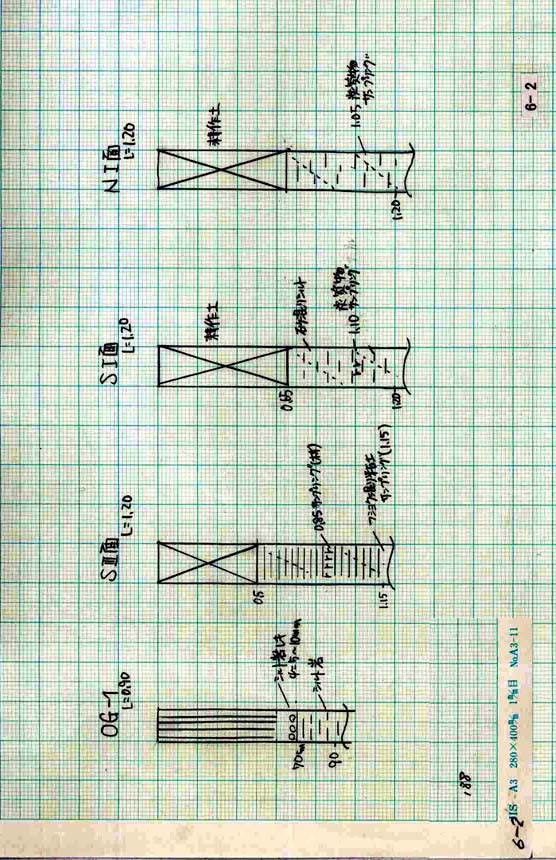 OG-1
L=0.90
シルト岩レキ
φ=5〜10mm
シルト岩
70cm
90
SⅢ面
L=1.20
0.5
0.85 サンプリング(材)
フミョク混り粘土
サンプリング(1.15)
1.15
SⅠ面
L=1.20
耕作土
0.65
砂混りシルト
炭質物
1.10 サンプリング
1.20
NⅠ面
L=1.20
耕作土
1.05 炭質物
サンプリング
1.20
6-2
188
6-2
JIS-A3 280×400㎜ 1㎜目 No.A3-11